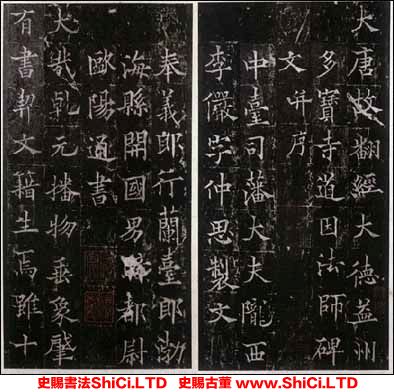 大唐故翻經大德益州
多寶寺道因法師碑
文并序
中臺司藩大夫隴西
李儼字仲思製文
奉義郎行蘭臺郎渤
海縣開國男騎都尉
歐陽通書
大哉乾元播物垂象肇
有書契文籍生焉雖十
史賜書法ShiCi.LTD 史賜古董 www.ShiCi.LTD